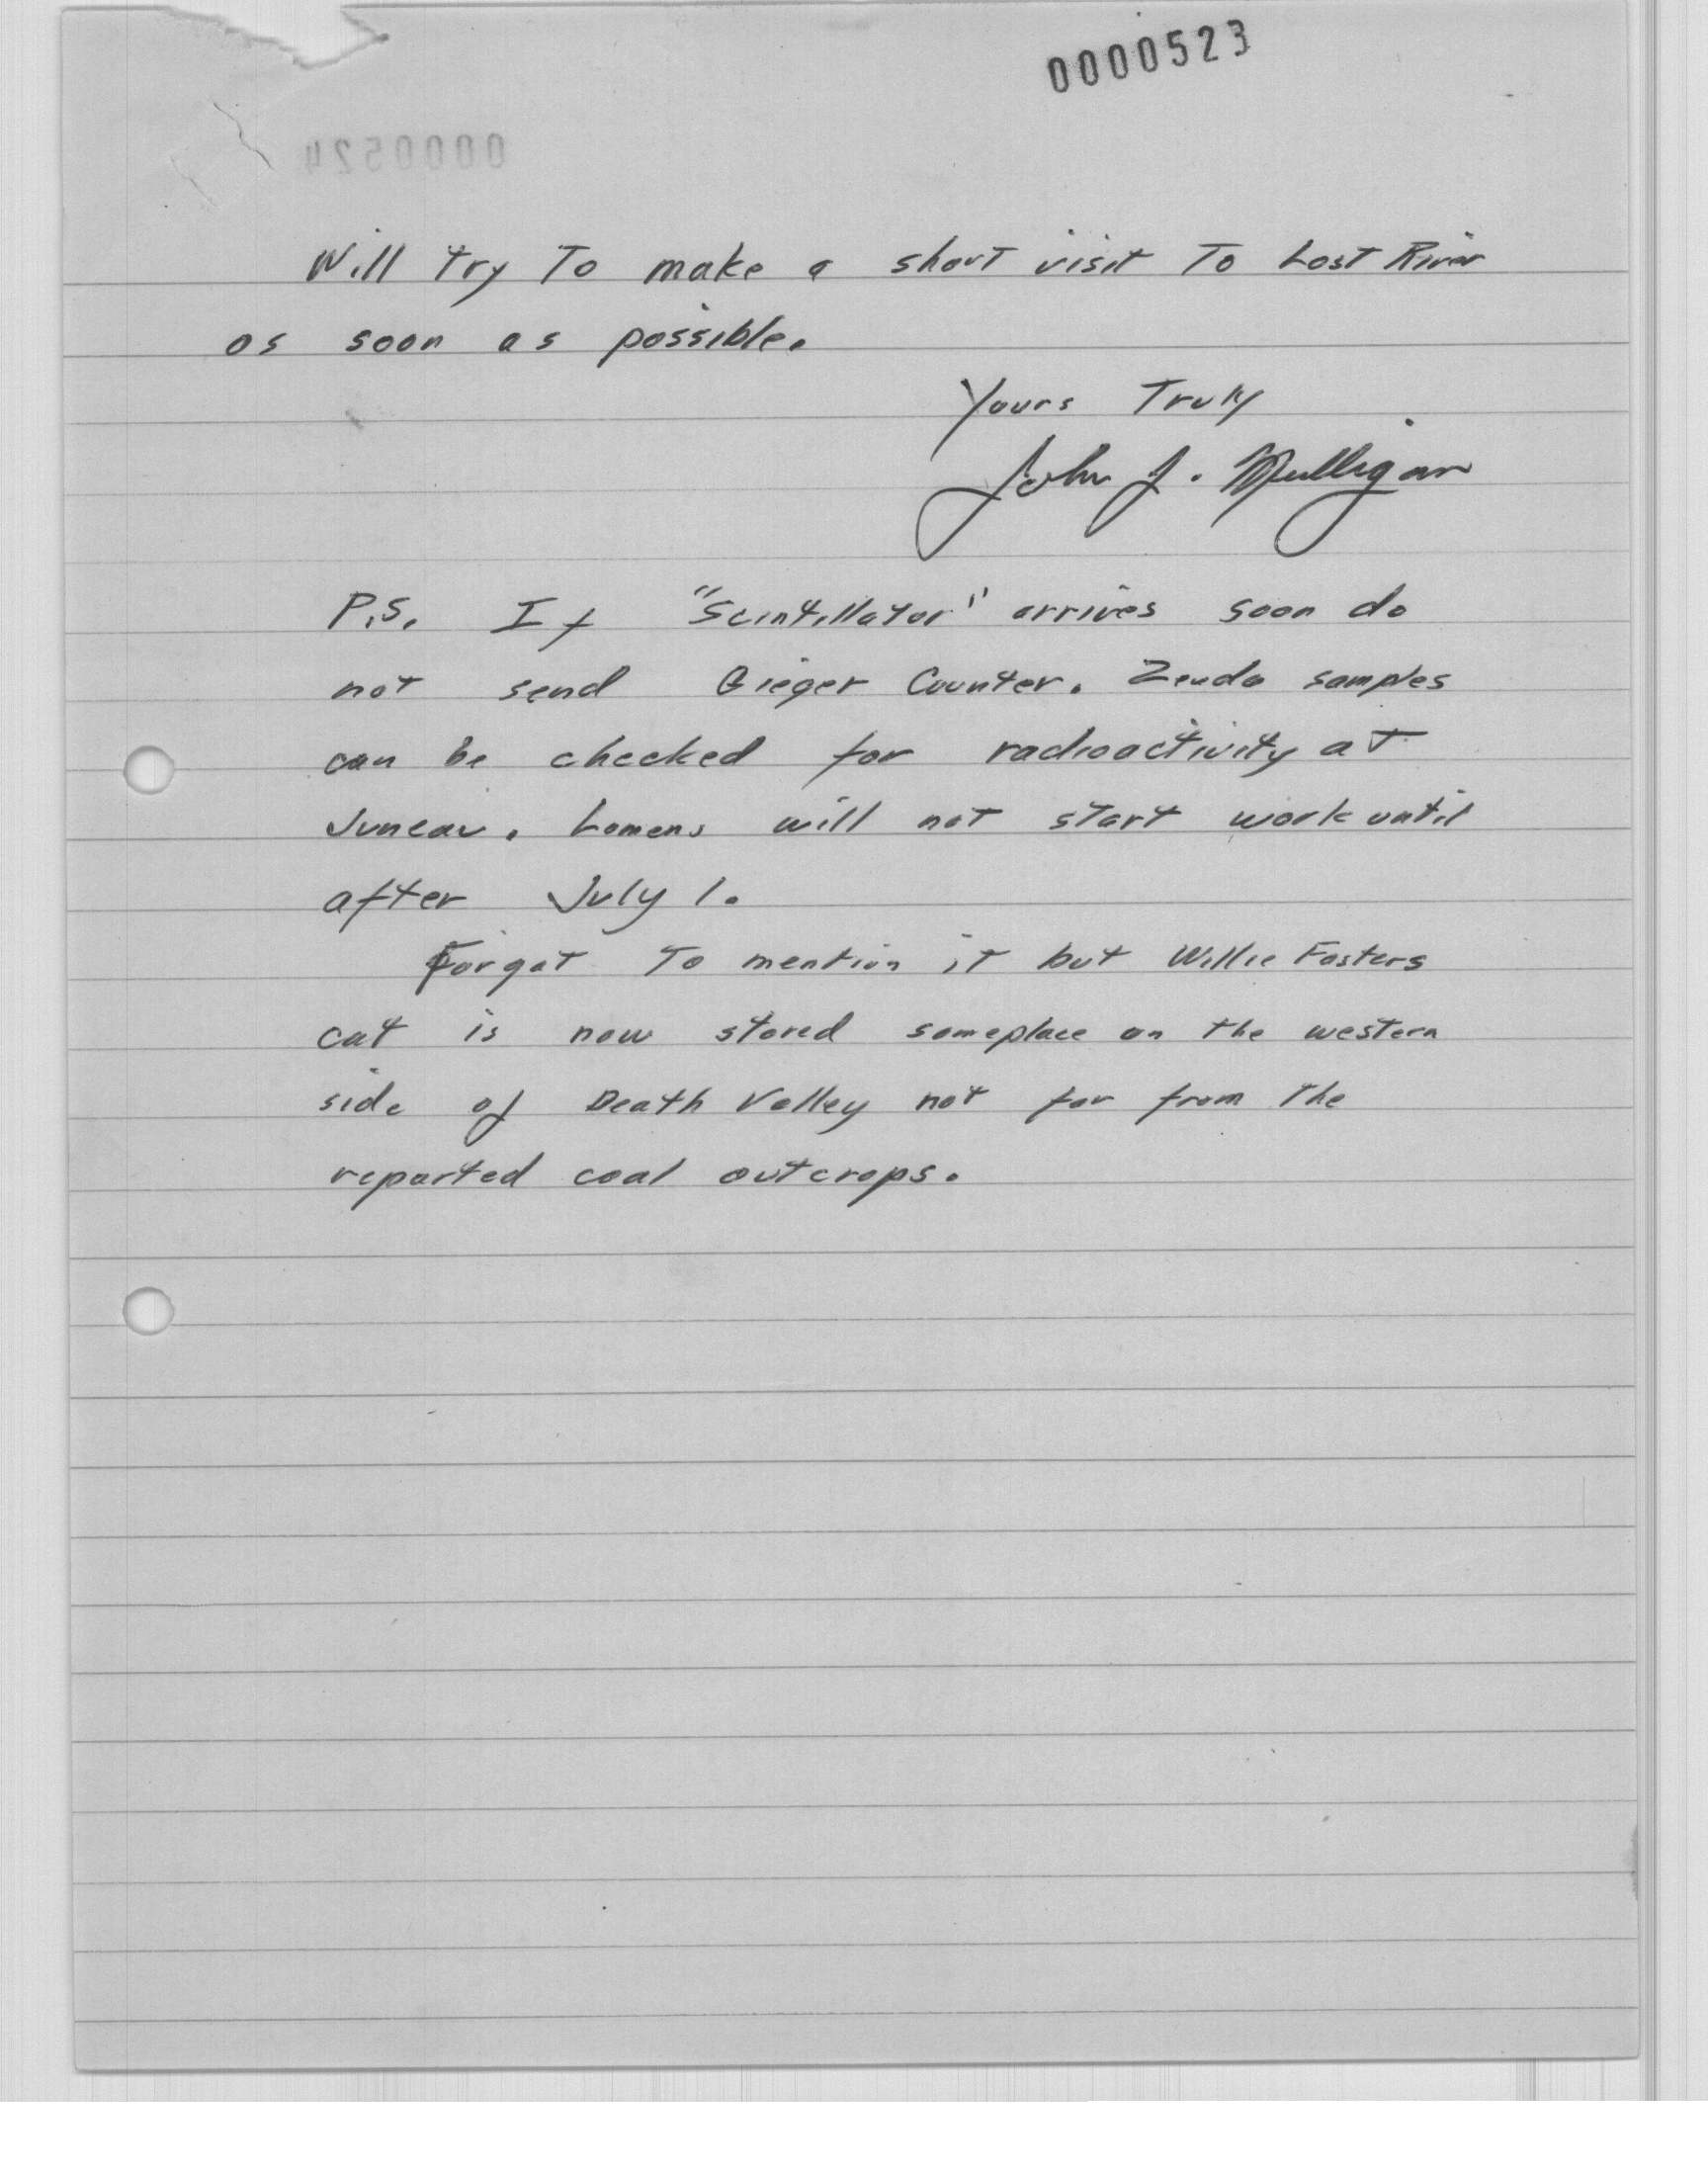 0000523
0000524
Will try To make a short visit To Lost River
as soon as possible.
Yours Truly
John J. Mulligan
P.S. If "Scintillator" arrives soon do
not send Gieger Counter. Zenda samples
can be checked for radioactivity at
Juneau. Lomens will not start work until
after July 1.
Forgot To mention it but Willie Fosters
cat is now stored someplace on the western
side of Death Valley not far from the
reported coal outcrops.